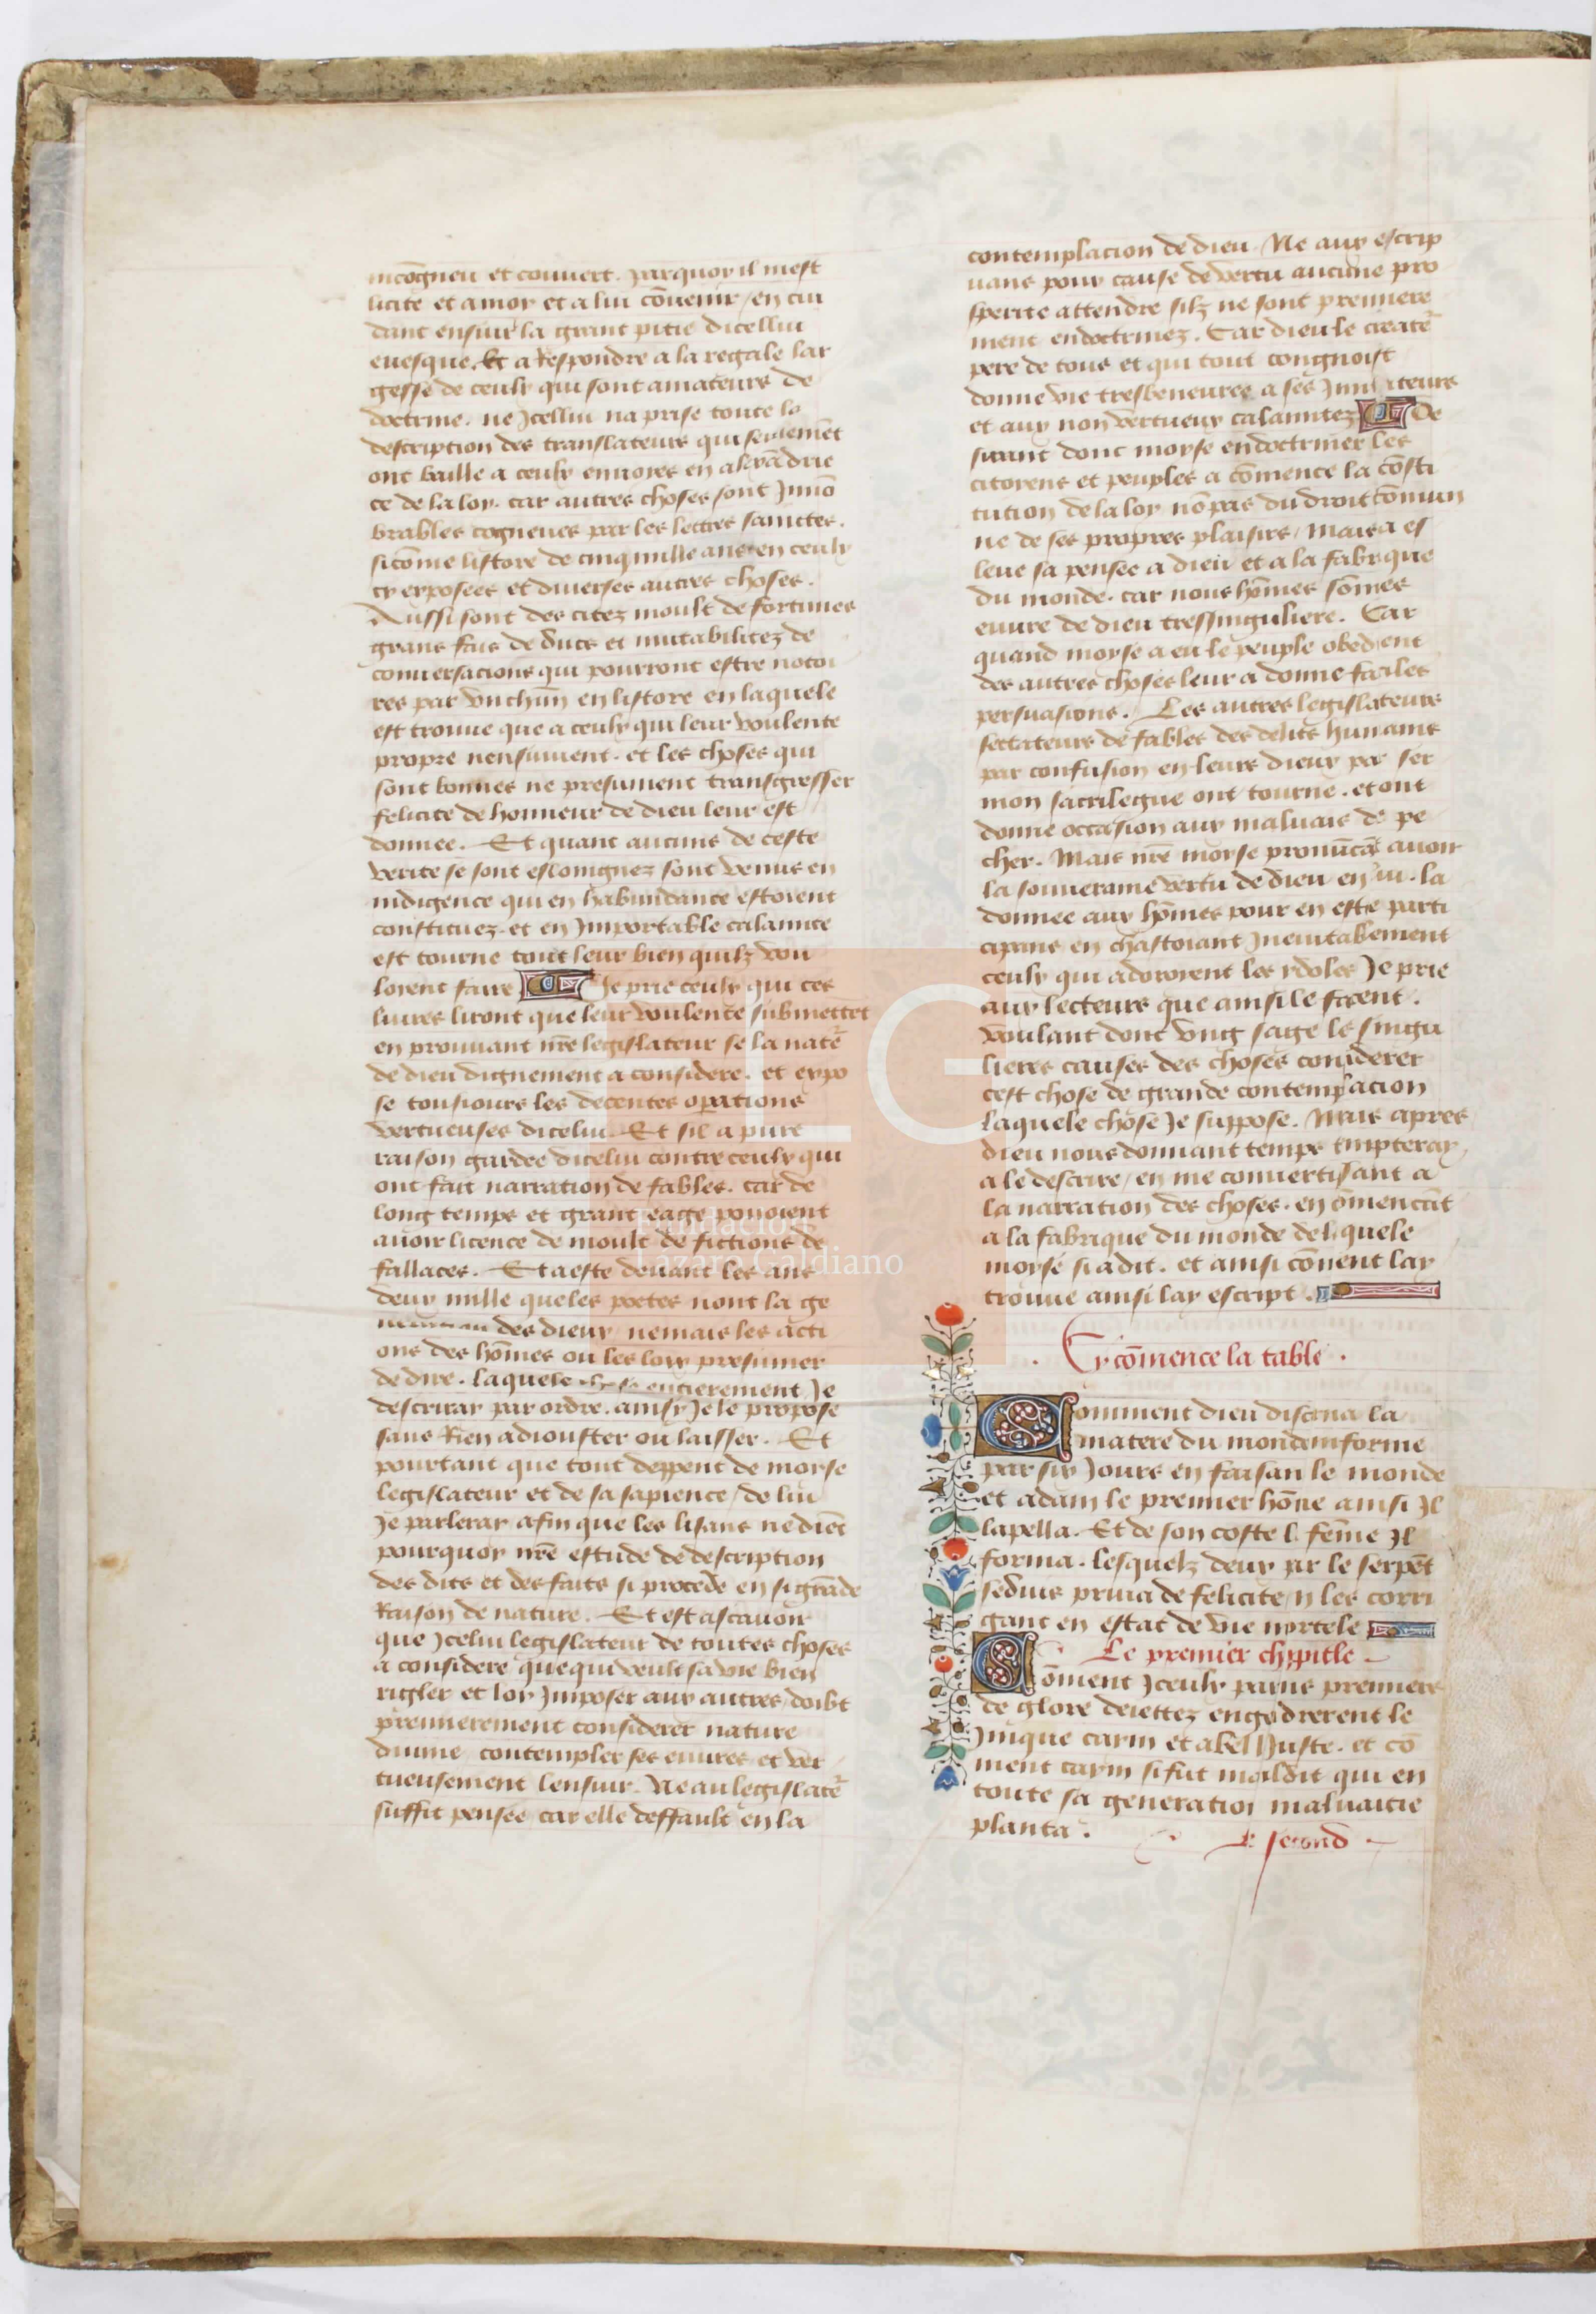 incõgneu et couuert. parquoy il mest
licite et a moy et a lui cõuenir / en cui
dant ensuir la grant pitie dicellui
euesque. Et a Respondre a la regale lar
gesse de ceulx qui sont amateurs de
doctrine. ne Jcellui na prise toute la
description des translateurs qui seulemẽt
ont baille a ceulx enuoies en alexãdrie
ce de la loy. car autres choses sont Jnnũ
brables cogneues par les lettres sainctes.
sicõme listore de cinq mille ans en ceulx
cy exposees et diuerses autres choses.
Aussi sont des citez moult de fortunes
grans fais de ducs et mutabilitez de
conuersacions qui pourront estre notoi
res par vnchũn en listore en laquele
est trouue que a ceulx qui leur voulente
propre nensuiuent. et les choses qui
sont bonnes ne presument transgresser
felicite de honneur de dieu leur est
donnee. Et quant aucuns de ceste
verite se sont esloingnez sont venus en
indigence qui en habundance estoient
constituez. et en Jmportable calamite
est tourne tout leur bien quilz vou
loient faire Je prie ceulx qui ces
liures liront que leur voulente submettẽt
en prouuant nr̃e legislateur se la natẽ
de dieu dignement a considere. et expo
se tousiours les decentes operations
vertueuses dicelui. Et sil a pure
raison gardee dicelui contre ceulx qui
ont fait narration de fables. car de
long temps et grant eage pouoient
auoir licence de moult de fictions de
fallaces. Et a este deuant les ans
deux mille queles poetes nont la ge
des dieux nemais les acti
ons des hõmes ou les loix presumer
de dire. laquele chose entierement Je
descriray par ordre. ainsy Je le propose
sans Rien adiouster ou laisser. Et
pourtant que tout deppent de moyse
legislateur et de sa sapience / de lui
Je parleray afin que les lisans ne diẽt
pourquoy nr̃e estude de description
des dits et des faits si procede en si grãde
Raison de nature. Et est ascauoir
que Jcelui legislateur de toutes choses
a considere que qui veult sa vie bien
rigler et loy Jmposer aux autres / doibt
premierement considerer nature
diuine contempler ses euures et ver
tueusement lensuir. Ne au legislatẽ
suffit pensee car elle deffault en la
contemplacion de dieu. Ne aux escrip
uans pour cause de vertu aucune pro
sperite attendre silz ne sont premiere
ment endoctrinez. Car dieu le creatẽ
pere de tous et qui tout congnoist
donne vie tresbeneuree a ses Jmitateurs
et aux non vertueux calamitez De
sirant donc moyse endoctriner les
citoyens et peuples a cõmence la cõsti
tution de la loy nõ pas du droit cõmun
ne de ses propres plaisirs / Mais a es
leue sa pensee a dieu et a la fabrique
du monde. car nous hõmes sõmes
euure de dieu tressinguliere. Car
quand moyse a eu le peuple obedient
des autres choses leur a donne faciles
persuasions. Les autres legislateurs
sectateurs de fables des delits humains
par confusion en leurs dieux par ser
mon sacrilegue ont tourne. et ont
donne occasion aux maluais de pe
cher. Mais nr̃e moyse pronũca auoir
la souueraine vertu de dieu en lui. la
donnee aux hõmes pour en estre parti
cipans en chastoiant Jneuitablement
ceulx qui adoroient les ydoles Je prie
aux lecteurs que ainsi le facent.
voulant donc vng sage les singu
lieres causes des choses considerer
cest chose de grande contemplacion
laquele chose Je suppose. Mais apres
dieu nous donnant temps tmpteray
a le descrire / en me conuertissant a
la narration des choses. en cõmencãt
a la fabrique du monde de laquele
moyse si a dit. et ainsi cõment lay
trouue ainsi lay escript.
Cy cõmence la table.
Comment dieu discerna la
matere du monde informe
par six Jours en faisan le monde
et adam le premier hõme ainsi Jl
lapella. Et de son coste la fẽme Jl
forma. lesquelz deux par le serpẽt
seduis priua de felicite en les corri
gant en estat de vie mortele
Le premier chapitle
Cõment Jceulx parens premiers
de glore deiettez engẽdrerent le
Jnique cayn et abel Juste. et cõ
ment cayn si fut mauldit qui en
toute sa generation maluaitie
planta.
le second
Fundación
Lázaro Galdiano